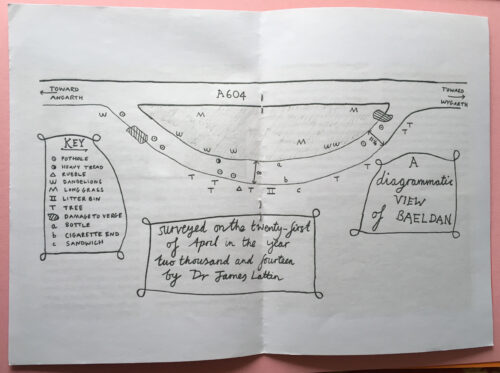 A604
TOWARD
ANGARTH
TOWARD
WYGARTH
KEY
POTHOLE
HEAVY TREAD
Δ RUBBLE
W DANDELIONS
M LONG GRASS
LITTER BIN
T TREE
DAMAGE TO VERGE
a BOTTLE
b CIGARETTE END
c SANDWICH
W
W
W
W
W
W
M
M
a
b
c
T
T
T
Δ
T
T
T
T
T
T
A
diagrammatic
VIEW
of BAELDAN
surveyed on the twenty-first
of April in the year
two thousand and fourteen
by Dr James Latten